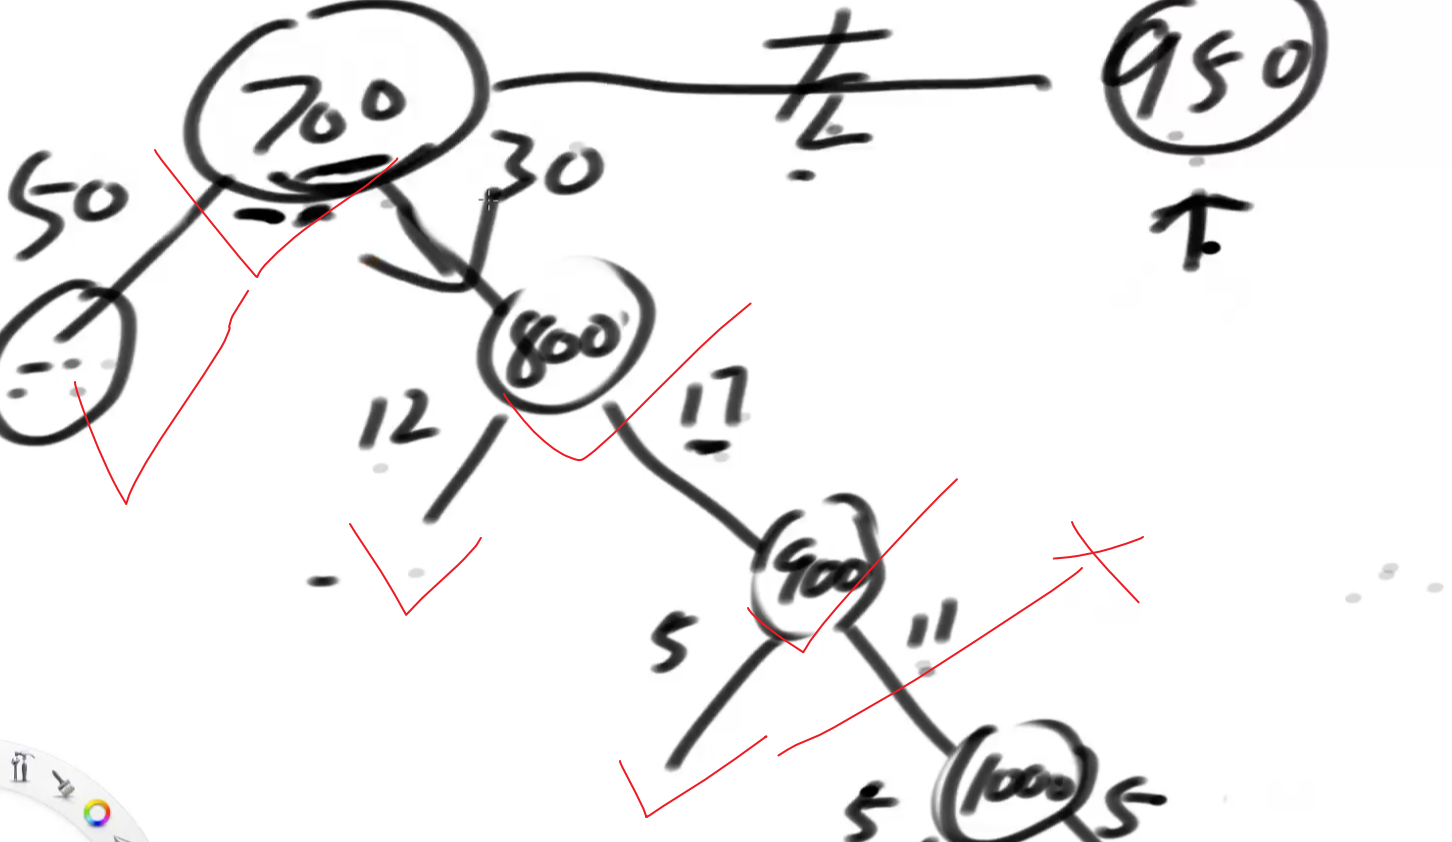 700
950
30
50
800
12
17
900
5
11
1000
5
5